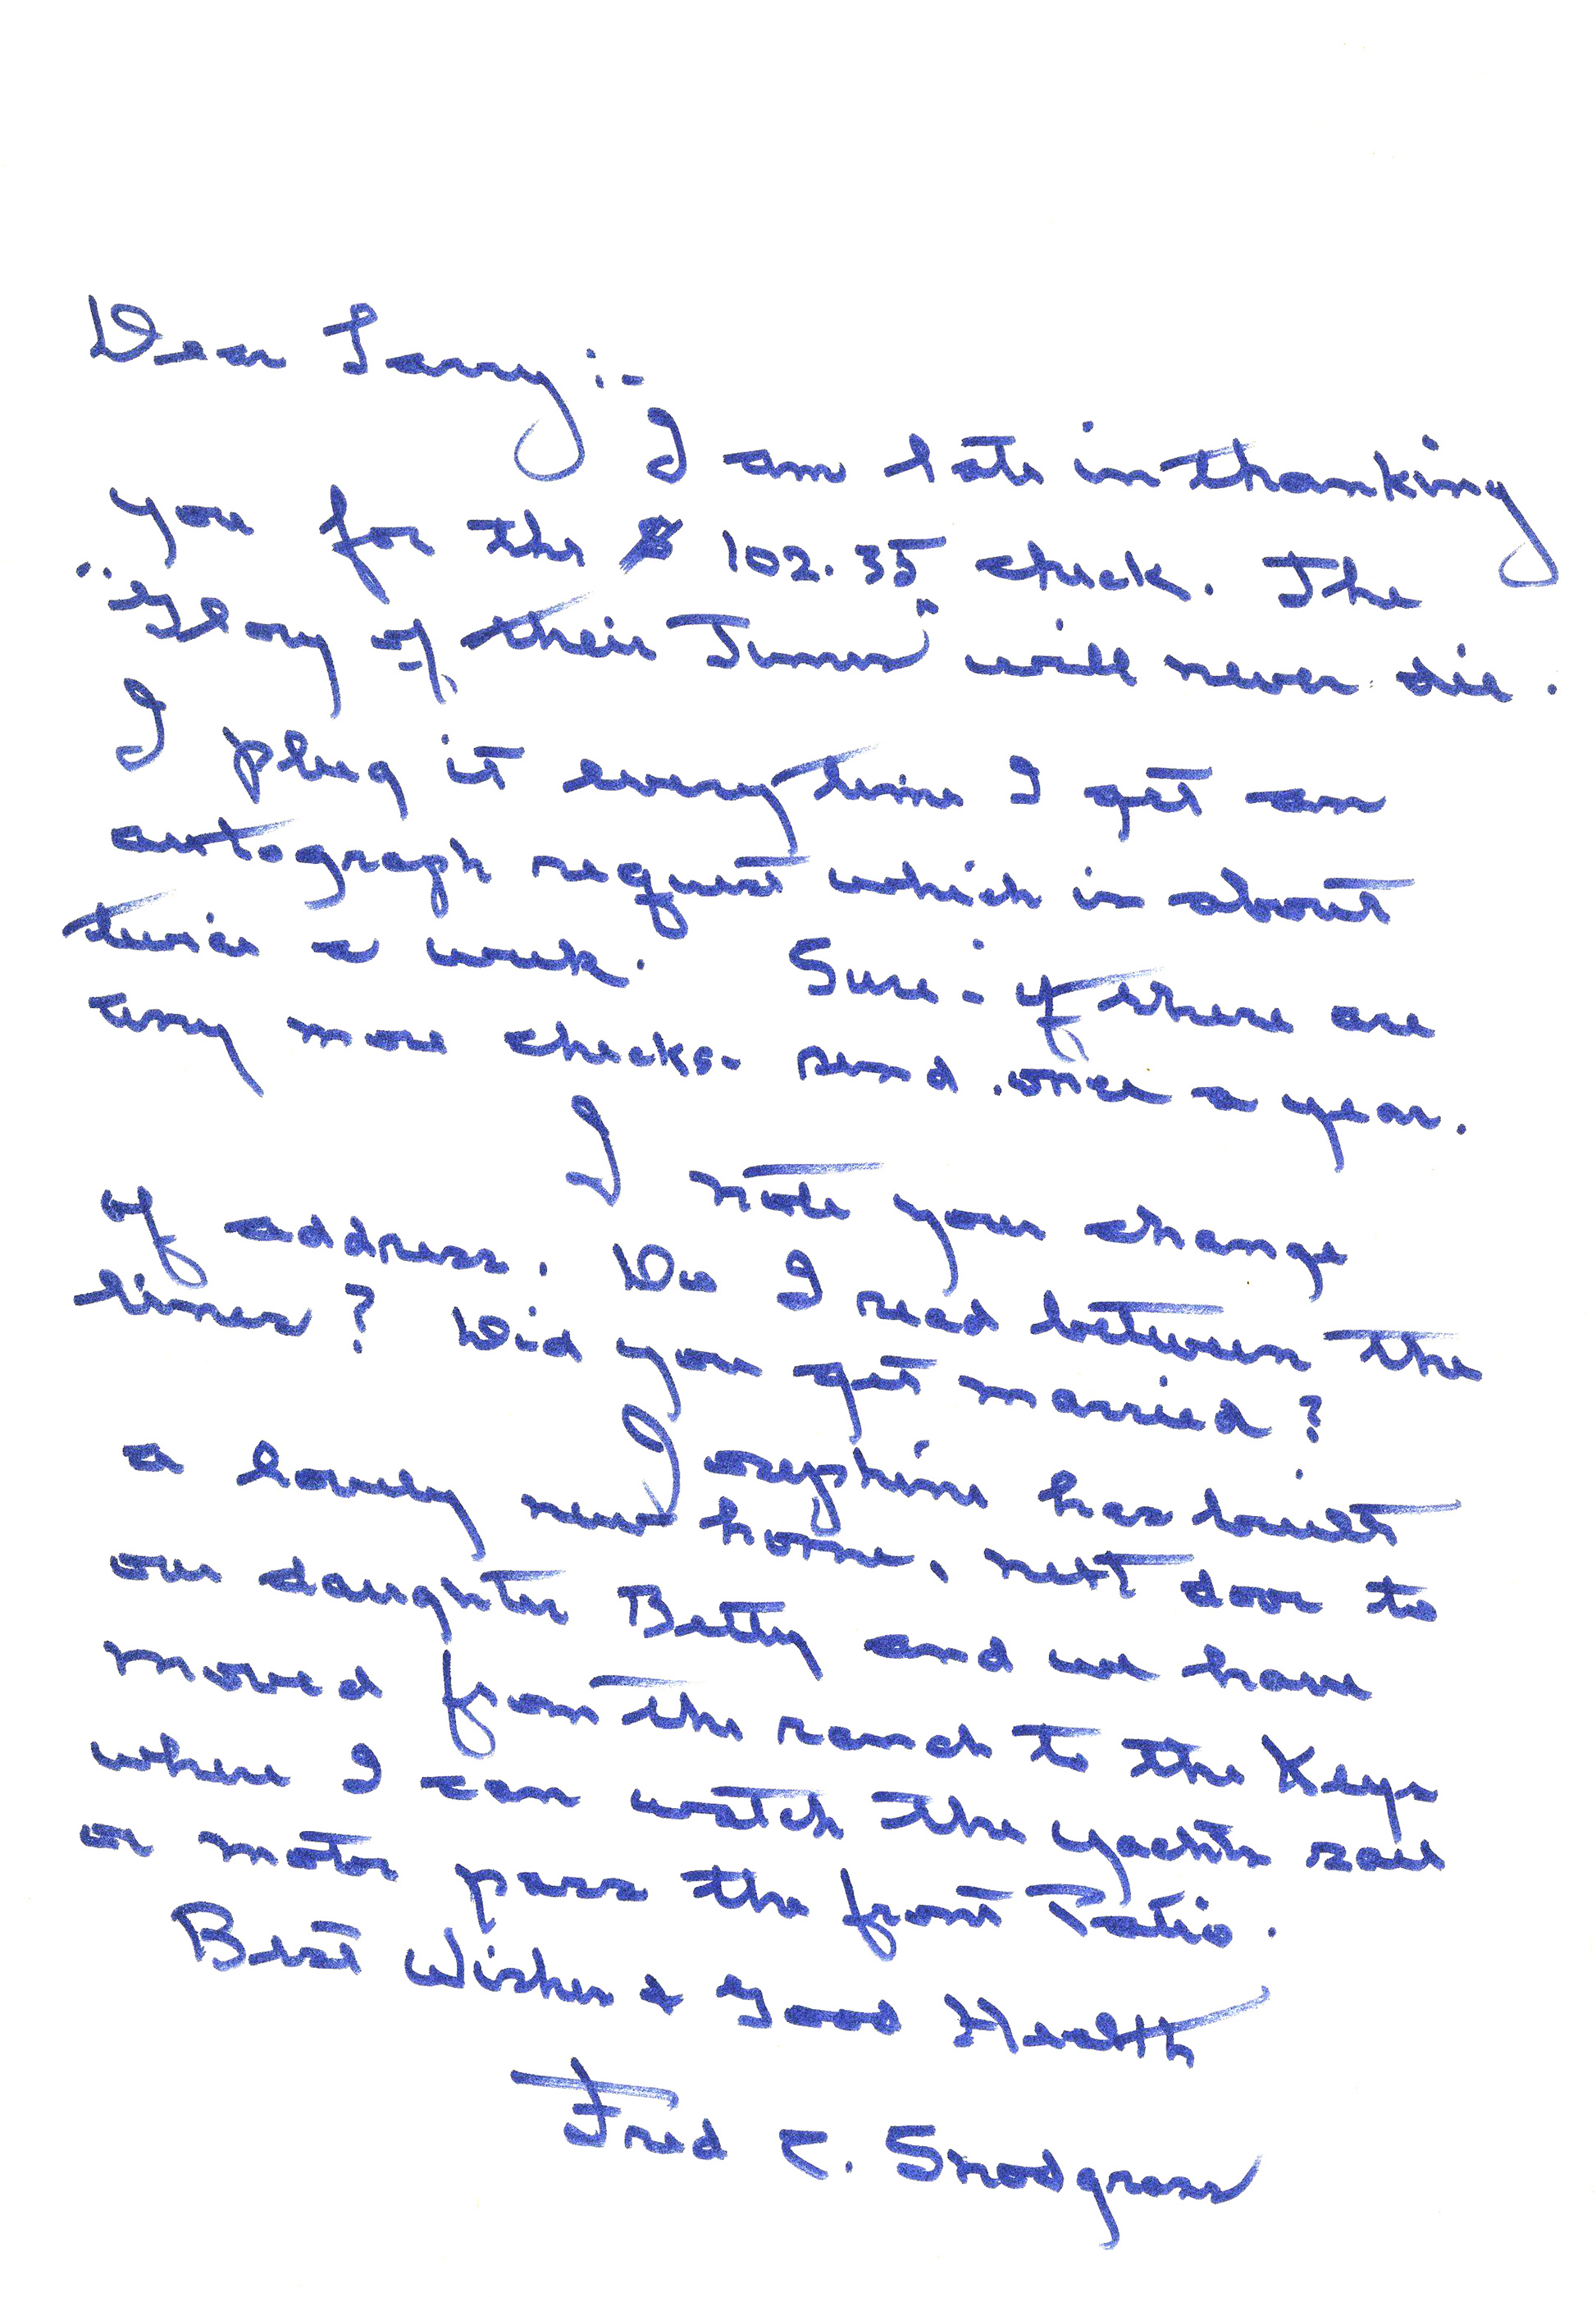 Dear Larry :-
I am late in thanking
you for the $ 102.35 check. The
"Glory of their Times" will never die.
I plug it every time I get an
autograph request which is about
twice a week. Sure - if there are
any more checks - send once a year.
I note your change
of address. Do I read between the
lines? Did you get married?
Josephine has built
a lovely new home, next door to
our daughter Betty and we have
moved from the ranch to the Keys
where I can watch the yachts sail
or motor pass the front Patio.
Best Wishes & Good Health
Fred C. Snodgrass